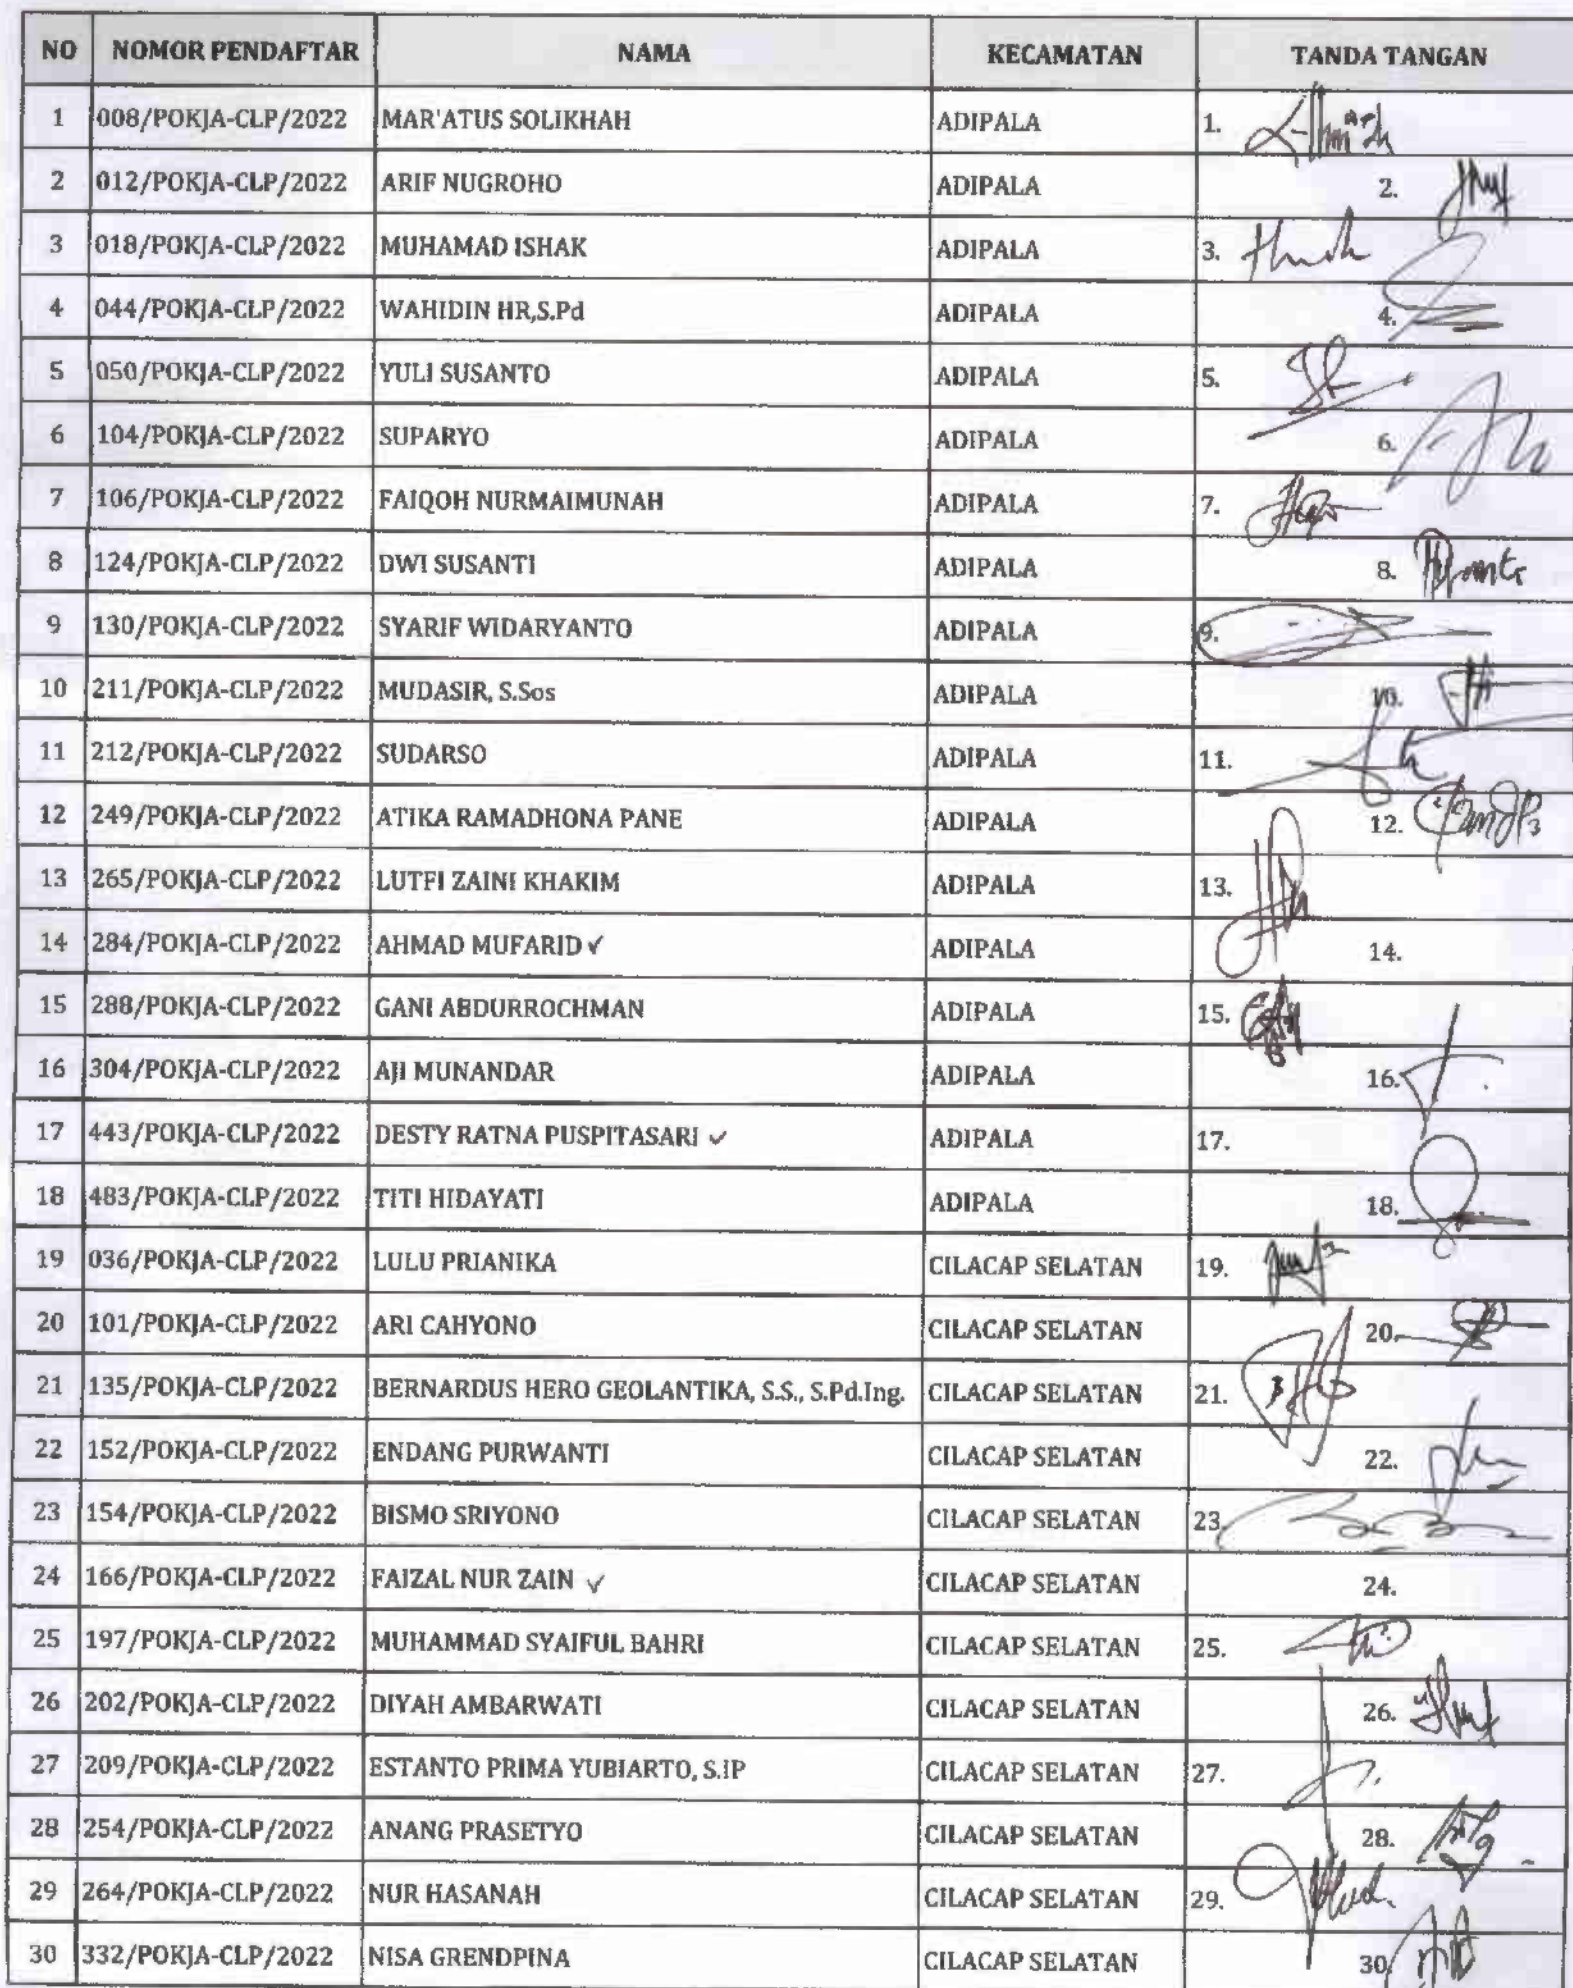 NO NOMOR PENDAFTAR NAMA KECAMATAN TANDA TANGAN
1 008/POKJA-CLP/2022 MAR'ATUS SOLIKHAH ADIPALA 1.
2 012/POKJA-CLP/2022 ARIF NUGROHO ADIPALA 2.
3 018/POKJA-CLP/2022 MUHAMAD ISHAK ADIPALA 3.
4 044/POKJA-CLP/2022 WAHIDIN HR,S.Pd ADIPALA 4.
5 050/POKJA-CLP/2022 YULI SUSANTO ADIPALA 5.
6 104/POKJA-CLP/2022 SUPARYO ADIPALA 6.
7 106/POKJA-CLP/2022 FAIQOH NURMAIMUNAH ADIPALA 7.
8 124/POKJA-CLP/2022 DWI SUSANTI ADIPALA 8.
9 130/POKJA-CLP/2022 SYARIF WIDARYANTO ADIPALA 9.
10 211/POKJA-CLP/2022 MUDASIR, S.Sos ADIPALA 10.
11 212/POKJA-CLP/2022 SUDARSO ADIPALA 11.
12 249/POKJA-CLP/2022 ATIKA RAMADHONA PANE ADIPALA 12.
13 265/POKJA-CLP/2022 LUTFI ZAINI KHAKIM ADIPALA 13.
14 284/POKJA-CLP/2022 AHMAD MUFARID ✓ ADIPALA 14.
15 288/POKJA-CLP/2022 GANI ABDURROCHMAN ADIPALA 15.
16 304/POKJA-CLP/2022 AJI MUNANDAR ADIPALA 16.
17 443/POKJA-CLP/2022 DESTY RATNA PUSPITASARI ✓ ADIPALA 17.
18 483/POKJA-CLP/2022 TITI HIDAYATI ADIPALA 18.
19 036/POKJA-CLP/2022 LULU PRIANIKA CILACAP SELATAN 19.
20 101/POKJA-CLP/2022 ARI CAHYONO CILACAP SELATAN 20.
21 135/POKJA-CLP/2022 BERNARDUS HERO GEOLANTIKA, S.S., S.Pd.Ing. CILACAP SELATAN 21.
22 152/POKJA-CLP/2022 ENDANG PURWANTI CILACAP SELATAN 22.
23 154/POKJA-CLP/2022 BISMO SRIYONO CILACAP SELATAN 23.
24 166/POKJA-CLP/2022 FAIZAL NUR ZAIN ✓ CILACAP SELATAN 24.
25 197/POKJA-CLP/2022 MUHAMMAD SYAIFUL BAHRI CILACAP SELATAN 25.
26 202/POKJA-CLP/2022 DIYAH AMBARWATI CILACAP SELATAN 26.
27 209/POKJA-CLP/2022 ESTANTO PRIMA YUBIARTO, S.IP CILACAP SELATAN 27.
28 254/POKJA-CLP/2022 ANANG PRASETYO CILACAP SELATAN 28.
29 264/POKJA-CLP/2022 NUR HASANAH CILACAP SELATAN 29.
30 332/POKJA-CLP/2022 NISA GRENDPINA CILACAP SELATAN 30.